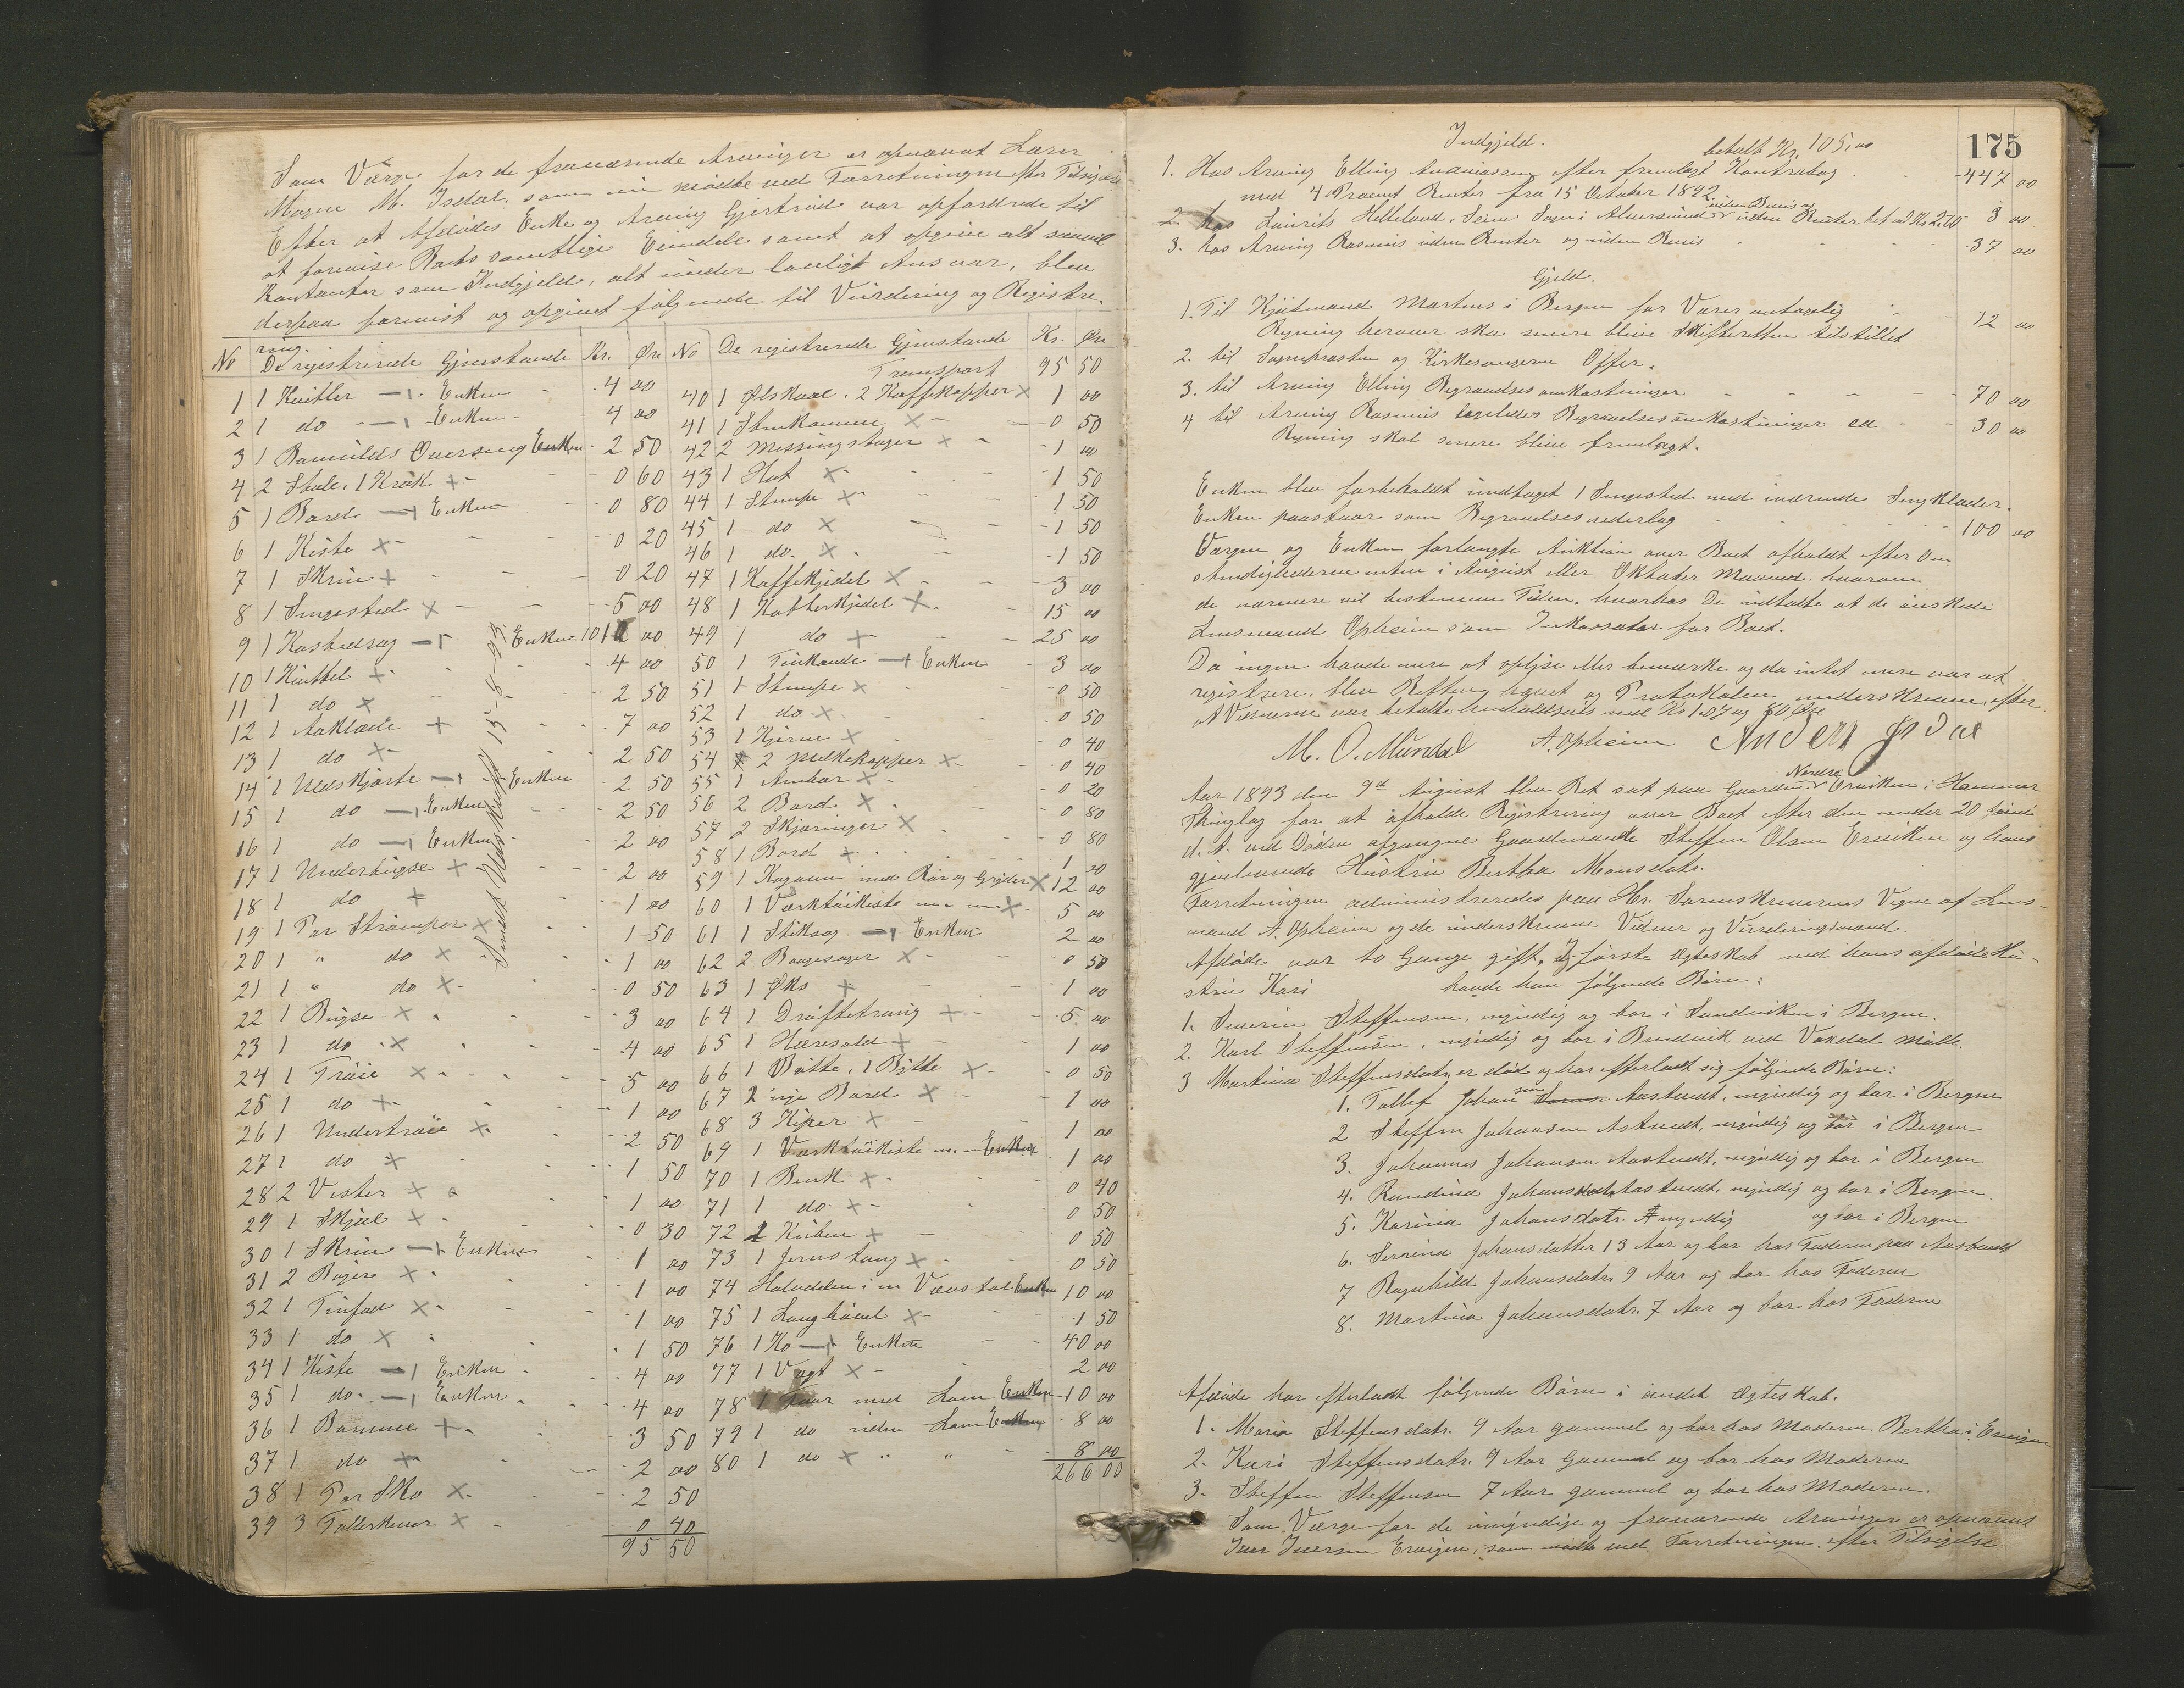 Som Værge for de fraværende Arvinger er opnævnt Lærer
Mogne M. Isdal, som nu mødte ved Forretningen efter Tilsigelse
Efter at Afdødes Enke og Arving Gjertrud var opfordrede til
at forevise Boets samtlige Eiendele samt at opgive alt saavel
Kontanter som Indgjeld, alt under lovligt Ansvar, blev
derpaa forevist og opgivet følgende til Vurdering og Registre-
ring.
No De registrerede Gjenstande Kr. Øre
1 1 Kvitler — Enken 4 00
2 1 do — Enken 4 00
3 1 Enken 2 50
4 2 Stole, 1 Krak + 0 60
5 1 Bord — Enken 0 80
6 1 Kiste x 0 20
7 1 Skrin + 0 20
8 1 Sengested x 5 00
9 1 — Enken
10 1 Kvittel + 4 00
11 1 do x 2 50
12 1 Aaklæde + 7 00
13 1 do x 2 50
14 1 Uldskjorte — Enken 2 50
15 1 do — Enken 2 50
16 1 do — Enken 2 00
17 1 Underbugse + 2 00
18 1 do + 1 00
19 1 Par Strømper x 1 50
20 1 " do x 1 00
21 1 " do x 0 50
22 1 Bugse x 3 00
23 1 do x 4 00
24 1 Trøie x 5 00
25 1 do + 1 00
26 1 Undertrøie x 2 50
27 1 do x 1 50
28 2 Vester x 1 00
29 1 Skjæl x 0 30
30 1 Skrin — Enken 1 00
31 2 Bøger x 1 00
32 1 Tinfad x 1 00
33 1 do x 1 50
34 1 Kiste — Enken 4 00
35 1 do — Enken 4 00
36 1 Bomme + 3 50
37 1 do + 2 00
38 1 Par Sko x 2 50
39 3 Tallerkener x 0 40
95 50
No De registrerede Gjenstande Kr. Øre
Transport 95 50
40 1 Ølskaal. 2 Kaffekopper x 1 00
41 1 x 0 50
42 2 Messingstager x 1 00
43 1 Hat x 1 50
44 1 Stampe x 1 50
45 1 do x 1 50
46 1 do. x 1 50
47 1 Kaffekjedel x 3 00
48 1 Kobberkjedel x 15 00
49 1 do + 25 00
50 1 Tinkande — Enken 3 00
51 1 Stampe x 0 50
52 1 do x 0 50
53 1 Kjerne x 0 40
54 2 Melkekopper x 0 40
55 1 Ambar x 0 20
56 2 Bord x 0 80
57 2 Skjæringer x 0 80
58 1 Bord x 1 00
59 1 Kogeovn med Rør og Gryder x 12 00
60 1 Værktøikiste m. m x 5 00
61 1 Stiksag — Enken 2 00
62 2 Baagesager x 0 50
63 1 Øks + 1 00
64 1 Drøftetraug x 5 00
65 1 Hæresold + 1 00
66 1 Bøtte, 1 Bytte x 0 50
67 2 nye Bord x 1 00
68 3 Kiper x 1 00
69 1 Værktøikiste m. m Enken 1 00
70 1 Benk x 0 40
71 1 do. x 0 50
72 1 Kuben + 0 50
73 1 Jernstang x 0 50
74 Halvdelen i en Vævstol Enken 10 00
75 1 Langhøvel x 1 50
76 1 Ko — Enken 40 00
77 1 Vægt x 2 00
78 1 Faar med Lam Enken 10 00
79 1 do uden Lam Enken 8 00
80 1 do x " " 8 00
266 00
175
Indgjeld.
betalt Kr. 105,00
1. Hos Arving Elling Andreassen efter fremlagt Kontrabog 447 00
med 4 Procent Renter fra 15 Oktober 1892.
uden Bevis og
2. hos Laurits Helleland, Seim Sogn i Alversund uden Renter bet ad Kr 2.70 3 00
3. hos Arving Rasmus uden Renter og uden Bevis 37 00
Gjeld.
1. Til Kjøbmand Martens i Bergen for Varer antagelig 12 00
Regning herover skal senere blive Skifteretten tilstillet
2. til Sognepræsten og Kirkesangeren Offer.
3. til Arving Elling Begravelsesomkostninger 70 00
4 til Arving Rasmus ligeledes Begravelsesomkostninger ca 30 00
Regning skal senere blive fremlagt.
Enken blev forbeholdt undtaget 1 Sengested med iværende Sengklæder.
Enken paastaar som Begravelsesvederlag 100 00
Værgen og Enken forlangte Auktion over Boet afholdt efter Om-
stændighederne enten i August eller Oktober Maaned. hvorom
de nærmere vil bestemme Tiden, hvorhos De udtalte at de ønskede
Lensmand Opheim som Inkassator for Boet.
Da ingen havde mere at oplyse eller bemærke og da intet mere var at
registrere, blev Retten hævet og Protokolen underskreven, efter
at Vidnerne var betalte henholdsvis med Kr 1.07 og 80 Øre
M. O. Mundal A. Opheim Anders Isdal
Nordre
Aar 1893 den 9de August blev Ret sat paa Gaarden Erviken i Hammer
Thinglag for at afholde Registrering over Boet efter den under 20 Juni
d. A. ved Døden afgangne Gaardmand Steffen Olsen Erviken og hans
gjenlevende Hustru Bertha Monsdatr.
Forretningen administreredes paa Hr. Sorenskriverens Vegne af Lens-
mand A. Opheim og de underskrevne Vidner og Vurderingsmænd.
Afdøde var to Gange gift, I første Ægteskab med hans afdøde Hu-
stru Kari havde han følgende Børn:
1. Severin Steffensen, myndig og bor i Sandviken i Bergen.
2. Karl Steffensen, myndig og bor i Bruvik ved Vaksdal Mølle.
3 Martina Steffensdatr. er død og har efterladt sig følgende Børn:
1. Tollef Johansen Aastvedt, myndig og bor i Bergen
2 Steffen Johansen Astvedt, myndig og bor i Bergen
3. Johannes Johansen Aastvedt, myndig og bor i Bergen
4. Randina Johansdatr. Aastvedt, myndig og bor i Bergen.
5. Karina Johansdatr. myndig og bor i Bergen
6. Severina Johansdatter 13 Aar og bor hos Faderen paa Aastvedt
7 Ragnhild Johansdatr. 9 Aar og bor hos Faderen
8. Martina Johansdatr. 7 Aar og bor hos Faderen
Afdøde har efterladt følgende Børn i andet Ægteskab.
1. Maria Steffensdatr. 9 Aar gammel og bor hos Moderen Bertha i Ervigen
2. Kari Steffensdatr. 9 Aar Gammel og bor hos Moderen
3. Steffen Steffensen 7 Aar gammel og bor hos Moderen.
Som Værge for de umyndige og fraværende Arvinger er opnævnt
Iver Iversen Ervigen, som mødte ved Forretningen efter Tilsigelse